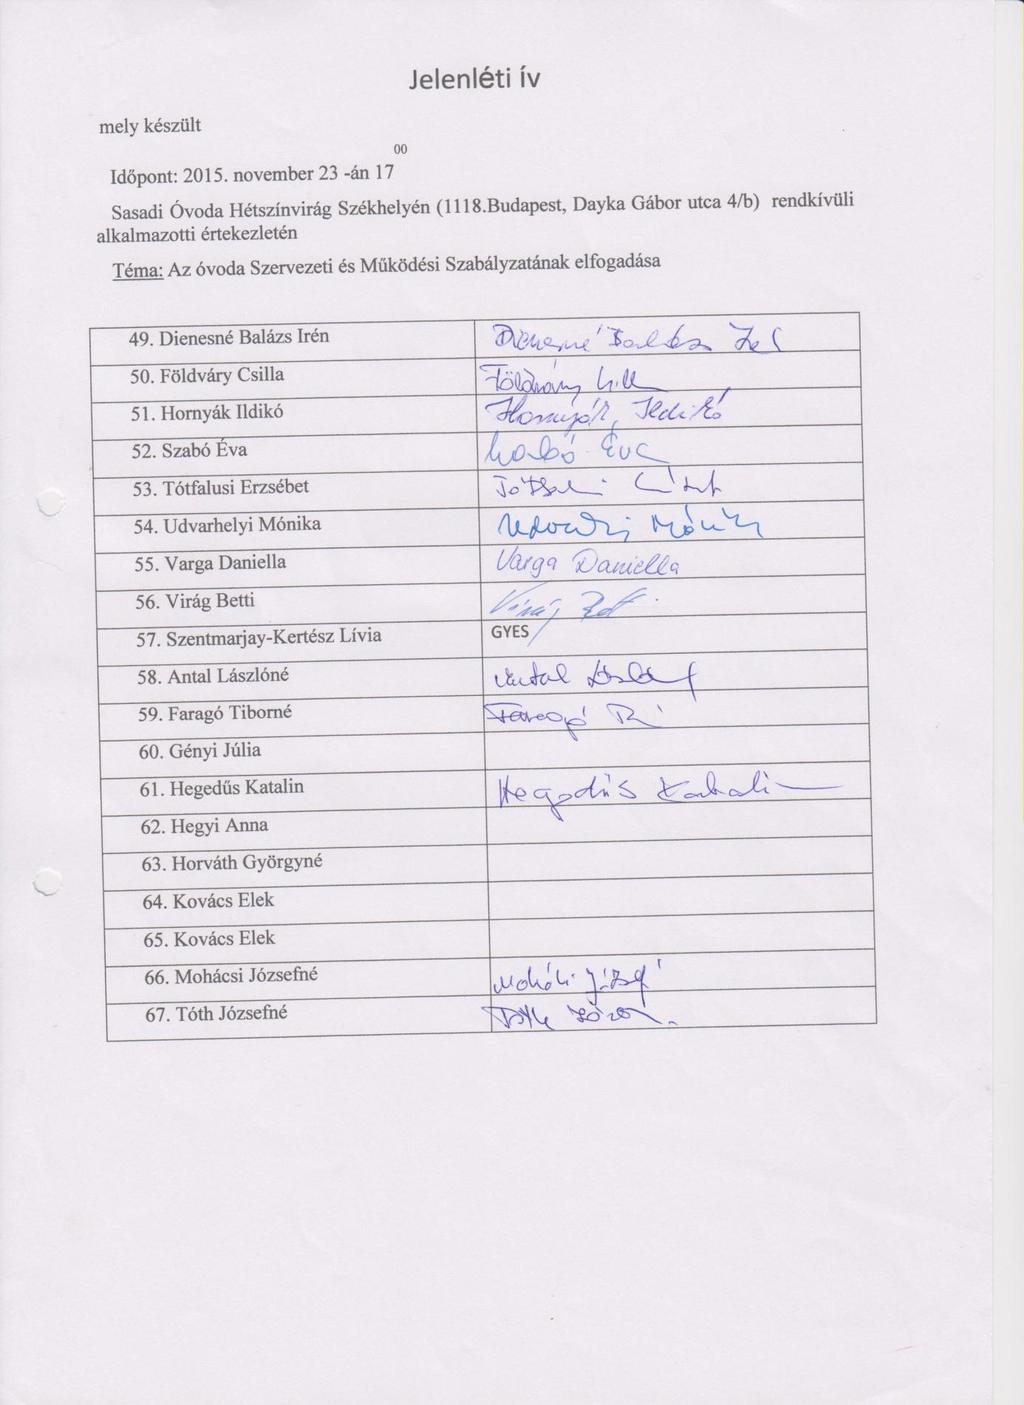 Jelenléti ív
mely készült
00
Időpont: 2015. november 23 -án 17
Sasadi Óvoda Hétszínvirág Székhelyén (1118.Budapest, Dayka Gábor utca 4/b) rendkívüli
alkalmazotti értekezletén
Téma: Az óvoda Szervezeti és Működési Szabályzatának elfogadása
49. Dienesné Balázs Irén Dienesné Balázs
50. Földváry Csilla Földváry
51. Hornyák Ildikó Hornyák Ildikó
52. Szabó Éva Szabó Éva
53. Tótfalusi Erzsébet
54. Udvarhelyi Mónika Mónika
55. Varga Daniella Varga Daniella
56. Virág Betti Virág
57. Szentmarjay-Kertész Lívia GYES
58. Antal Lászlóné Antal
59. Faragó Tiborné Faragó
60. Gényi Júlia
61. Hegedűs Katalin Hegedűs Katalin
62. Hegyi Anna
63. Horváth Györgyné
64. Kovács Elek
65. Kovács Elek
66. Mohácsi Józsefné
67. Tóth Józsefné Tóth